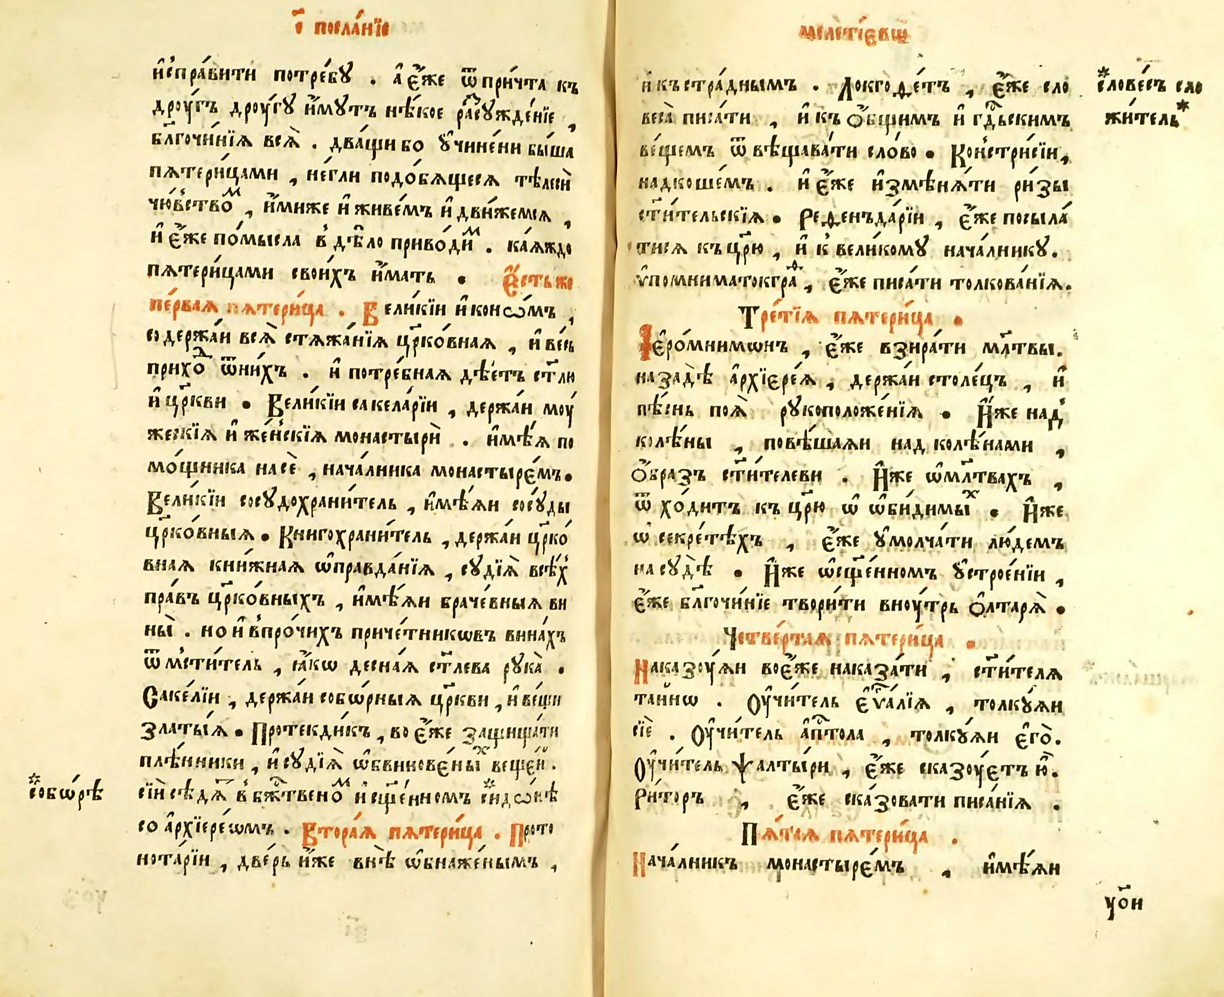 і҃ посла́нїе
и҆спра́вити потре́бꙋ . а҆ є҆́же ѿ при́чта къ
дрꙋ́гъ дрꙋ́гꙋ и҆́мꙋтъ нѣ́кое разсꙋжде́нїе ,
бл҃гочи́нїѧ всѧ̀ . два́щи бо ᲂу҆чине́ни бы́ша
пѧтери́цами , не́гли подо́бѧщесѧ тѣле́си
чю́вствоⷨ , и҆́миже и҆ живе́мъ и҆ дви́жемсѧ ,
и҆ є҆́же по́мысла в дѣ́ло приво́диⷨ . ка́ѧждо
пѧтери́цами свои́хъ и҆́мать . Е҆́сть же
пе́рваѧ пѧтери́ца . Вели́кїи и҆коно́мъ ,
содержа́и всѧ̀ стѧжа́нїѧ цр҃ко́внаѧ , и҆ ве́сь
прихоⷣ ѿ ни́хъ . и҆ потре́бнаѧ дѣ́етъ ст҃ли
и҆ цр҃кви . Вели́кїи сакела́рїи , держа́и мꙋ́
жескїѧ и҆ же́нскїѧ монастырѝ . и҆мѣ́ѧ по
мо́щника на сѐ , нача́лника монастыре́мъ.
Вели́кїи сосꙋдохрани́тель , и҆мѣ́ѧи сосꙋ́ды
цр҃ко́вныѧ . Книгохрани́тель , держа́и цр҃ко́
внаѧ кни́жнаѧ ѡ҆правда́нїѧ , сꙋдїѧ̀ всѣ́хъ
пра́въ цр҃ко́вныхъ , и҆мѣ́ѧи браче́вныѧ ви
ны̀ . но и҆ впро́чихъ приче́тникѡвъ вина́хъ
ѿмсти́тель , ꙗ҆́кѡ десна́ѧ ст҃лева рꙋка̀ .
Саке́лїи , держа́и собѡ́рныѧ цр҃кви , и҆ ве́щи
златы́ѧ . Протекди́къ , во є҆́же защища́ти
плѣ́нники , и҆ сꙋдїѧ̀ ѡ҆бвинове́ныⷯ веще́и .
сїи сѣдѧ́тъ в бж҃твеноⷨ и҆ сщ҃е́нномъ *сѵно́дѣ
*собѡ́рѣ
со а҆рхїере́ѡмъ . Втора́ѧ пѧтери́ца . Прото
нота́рїи , две́рь и҆́же внѣ̀ ѡ҆бнаже́нымъ ,
меле́тїевѡ
и҆ къ стра́днымъ . Логоѳе́тъ , є҆́же *сло
*слове́съ сло
веса̀ писа́ти , и҆ къ о҆́бщимъ и҆ гдⷭ҇ьскимъ
жи́тель*
ве́щемъ ѿвѣщава́ти сло́во . Кои́стрисїи,
над коше́мъ . и҆ є҆́же и҆змѣнѧ́ти ри́зы
ст҃и́тельскїѧ . Референъда́рїи , є҆́же посыла́
тисѧ къ цр҃ю̀ , и҆ к вели́комꙋ нача́лникꙋ.
ᲂу҆помниматокграⷴ , є҆́же писа́ти толкова́нїѧ.
Тре́тїѧ пѧтери́ца .
І҆еро́мнимѡнъ , є҆́же взира́ти мл҃твы.
на задѣ̀ а҆рхїере́ѧ , держа́и столе́цъ , и҆
пѣ́снь поѧ̀ рꙋкоположе́нїѧ . И҆́же над
колѣ́ны , повѣ́шаѧи над колѣ́нами ,
о҆́бразъ ст҃и́телеви . И҆́же ѡ҆ мл҃твахъ ,
ѿхо́дитъ къ цр҃ю̀ ѡ҆ ѡ҆би́димыⷯ . И҆́же
ѡ҆ секре́тѣхъ , є҆́же ᲂу҆молча́ти лю́демъ
на сꙋдѣ̀ . И҆́же ѡ҆ сщ҃е́нномъ ᲂу҆строе́нїи ,
є҆́же бл҃гочи́нїе твори́ти внꙋ́трь о҆лтарѧ̀ .
Четве́ртаѧ пѧтери́ца .
Наказꙋ́ѧи во є҆́же наказа́ти , ст҃и́телѧ
та́йнѡ . Оу҆чи́тель є҆ѵⷢ҇алїѧ , толкꙋ́ѧи
сїѐ . Оу҆чи́тель а҆пⷭ҇тола , толкꙋ́ѧи є҆го̀.
Оу҆чи́тель ѱалты́ри , є҆́же сказꙋ́етъ ю҆̀.
Ри́торъ , є҆́же ска́зовати писа́нїѧ .
Пѧ́таѧ пѧтери́ца .
Нача́лникъ монастыре́мъ , и҆мѣ́ѧи
уои